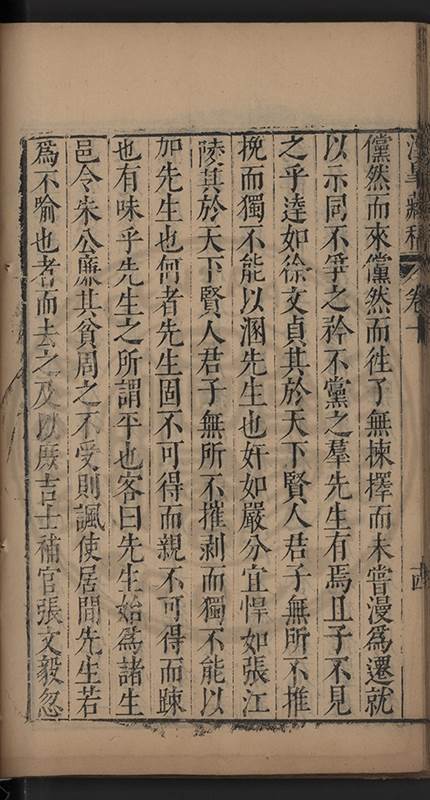 卷十
儻然而來儻然而往了無揀擇而未嘗漫爲遷就
以示同不爭之矜不黨之羣先生有焉且子不見
之乎達如徐文貞其於天下賢人君子無所不推
挽而獨不能以溷先生也奸如嚴分宜悍如張江
陵其於天下賢人君子無所不摧剥而獨不能以
加先生也何者先生固不可得而親不可得而踈
也有味乎先生之所謂平也客曰先生始爲諸生
邑令朱公廉其貧周之不受則諷使居間先生若
爲不喻也者而去之及以庶吉士補官張文毅忽